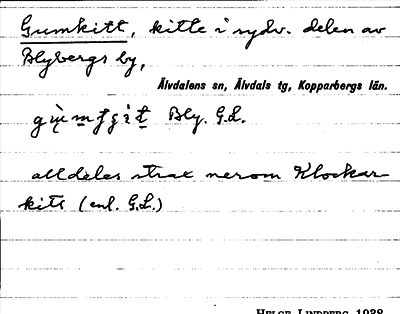 Gumkitt, kitte i sydv. delen av
Blybergs by,
Älvdalens sn, Älvdals tg, Kopparbergs län.
Bly. G.L.
alldeles strax nerom Klockar-
kitt (enl. G.L.)
HELGE LINDBERG 1938